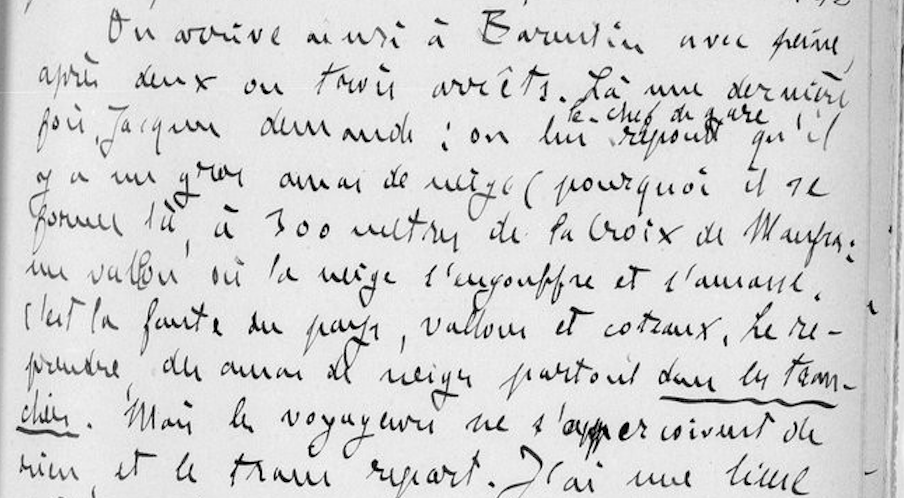 On arrive ainsi à Barentin avec peine,
après deux ou trois arrêts. Là une dernière
fois, Jacques demande : on lui répond qu'il
le chef de gare
y a un gros amas de neige (pourquoi il se
forme là, à 300 mètres de la Croix de Maufra :
un vallon où la neige s'engouffre et s'amasse.
C'est la faute du pays, vallons et coteaux. Le re-
prendre, des amas de neige partout dans les tran-
chées. Mais les voyageurs ne s'apperçoivent de
rien, et le train repart. J'ai une lieue